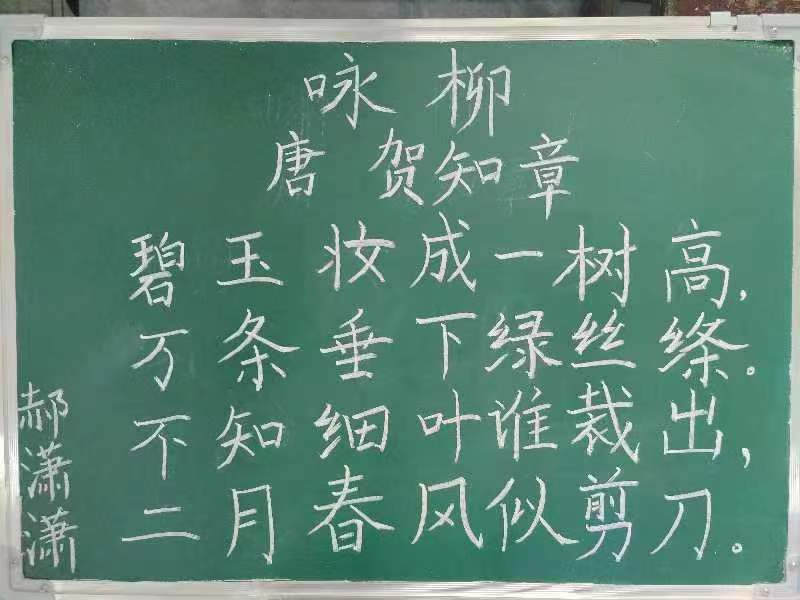 咏柳
唐 贺知章
碧玉妆成一树高，
万条垂下绿丝绦。
不知细叶谁裁出，
二月春风似剪刀。
郝潇潇